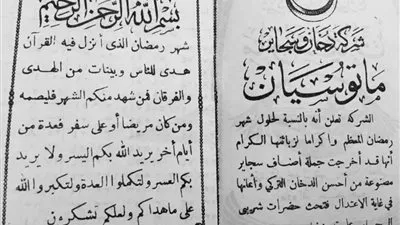 شركة دخان وسجاير
ماتوسيان
الشركة تعلن أنه بالنسبة لحلول شهر
رمضان المعظم واكراما لزبائنها الكرام
أنها قد أخرجت جملة أصناف سجاير
مصنوعة من أحسن الدخان التركى وأثمانها
فى غاية الاعتدال فنحث حضرات شريبى
بسم الله الرحمن الرحيم
شهر رمضان الذى أنزل فيه القرآن
هدى للناس وبينات من الهدى
والفرقان فمن شهد منكم الشهر فليصمه
ومن كان مريضا أو على سفر فعدة من
أيام أخر يريد الله بكم اليسر ولا يريد
بكم العسر ولتكملوا العدة ولتكبروا الله
على ما هداكم ولعلكم تشكرون